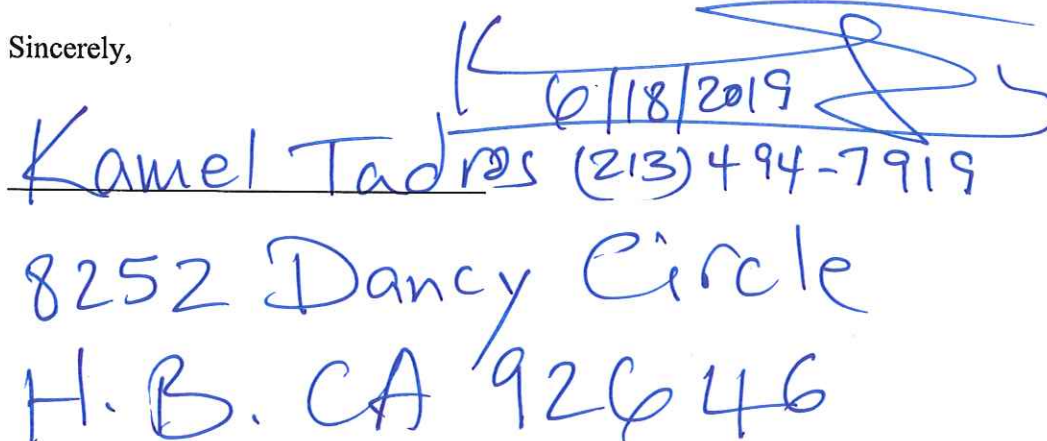 Sincerely,
6/18/2019
Kamel Tadros (213) 494-7919
8252 Dancy Circle
H.B. CA 92646